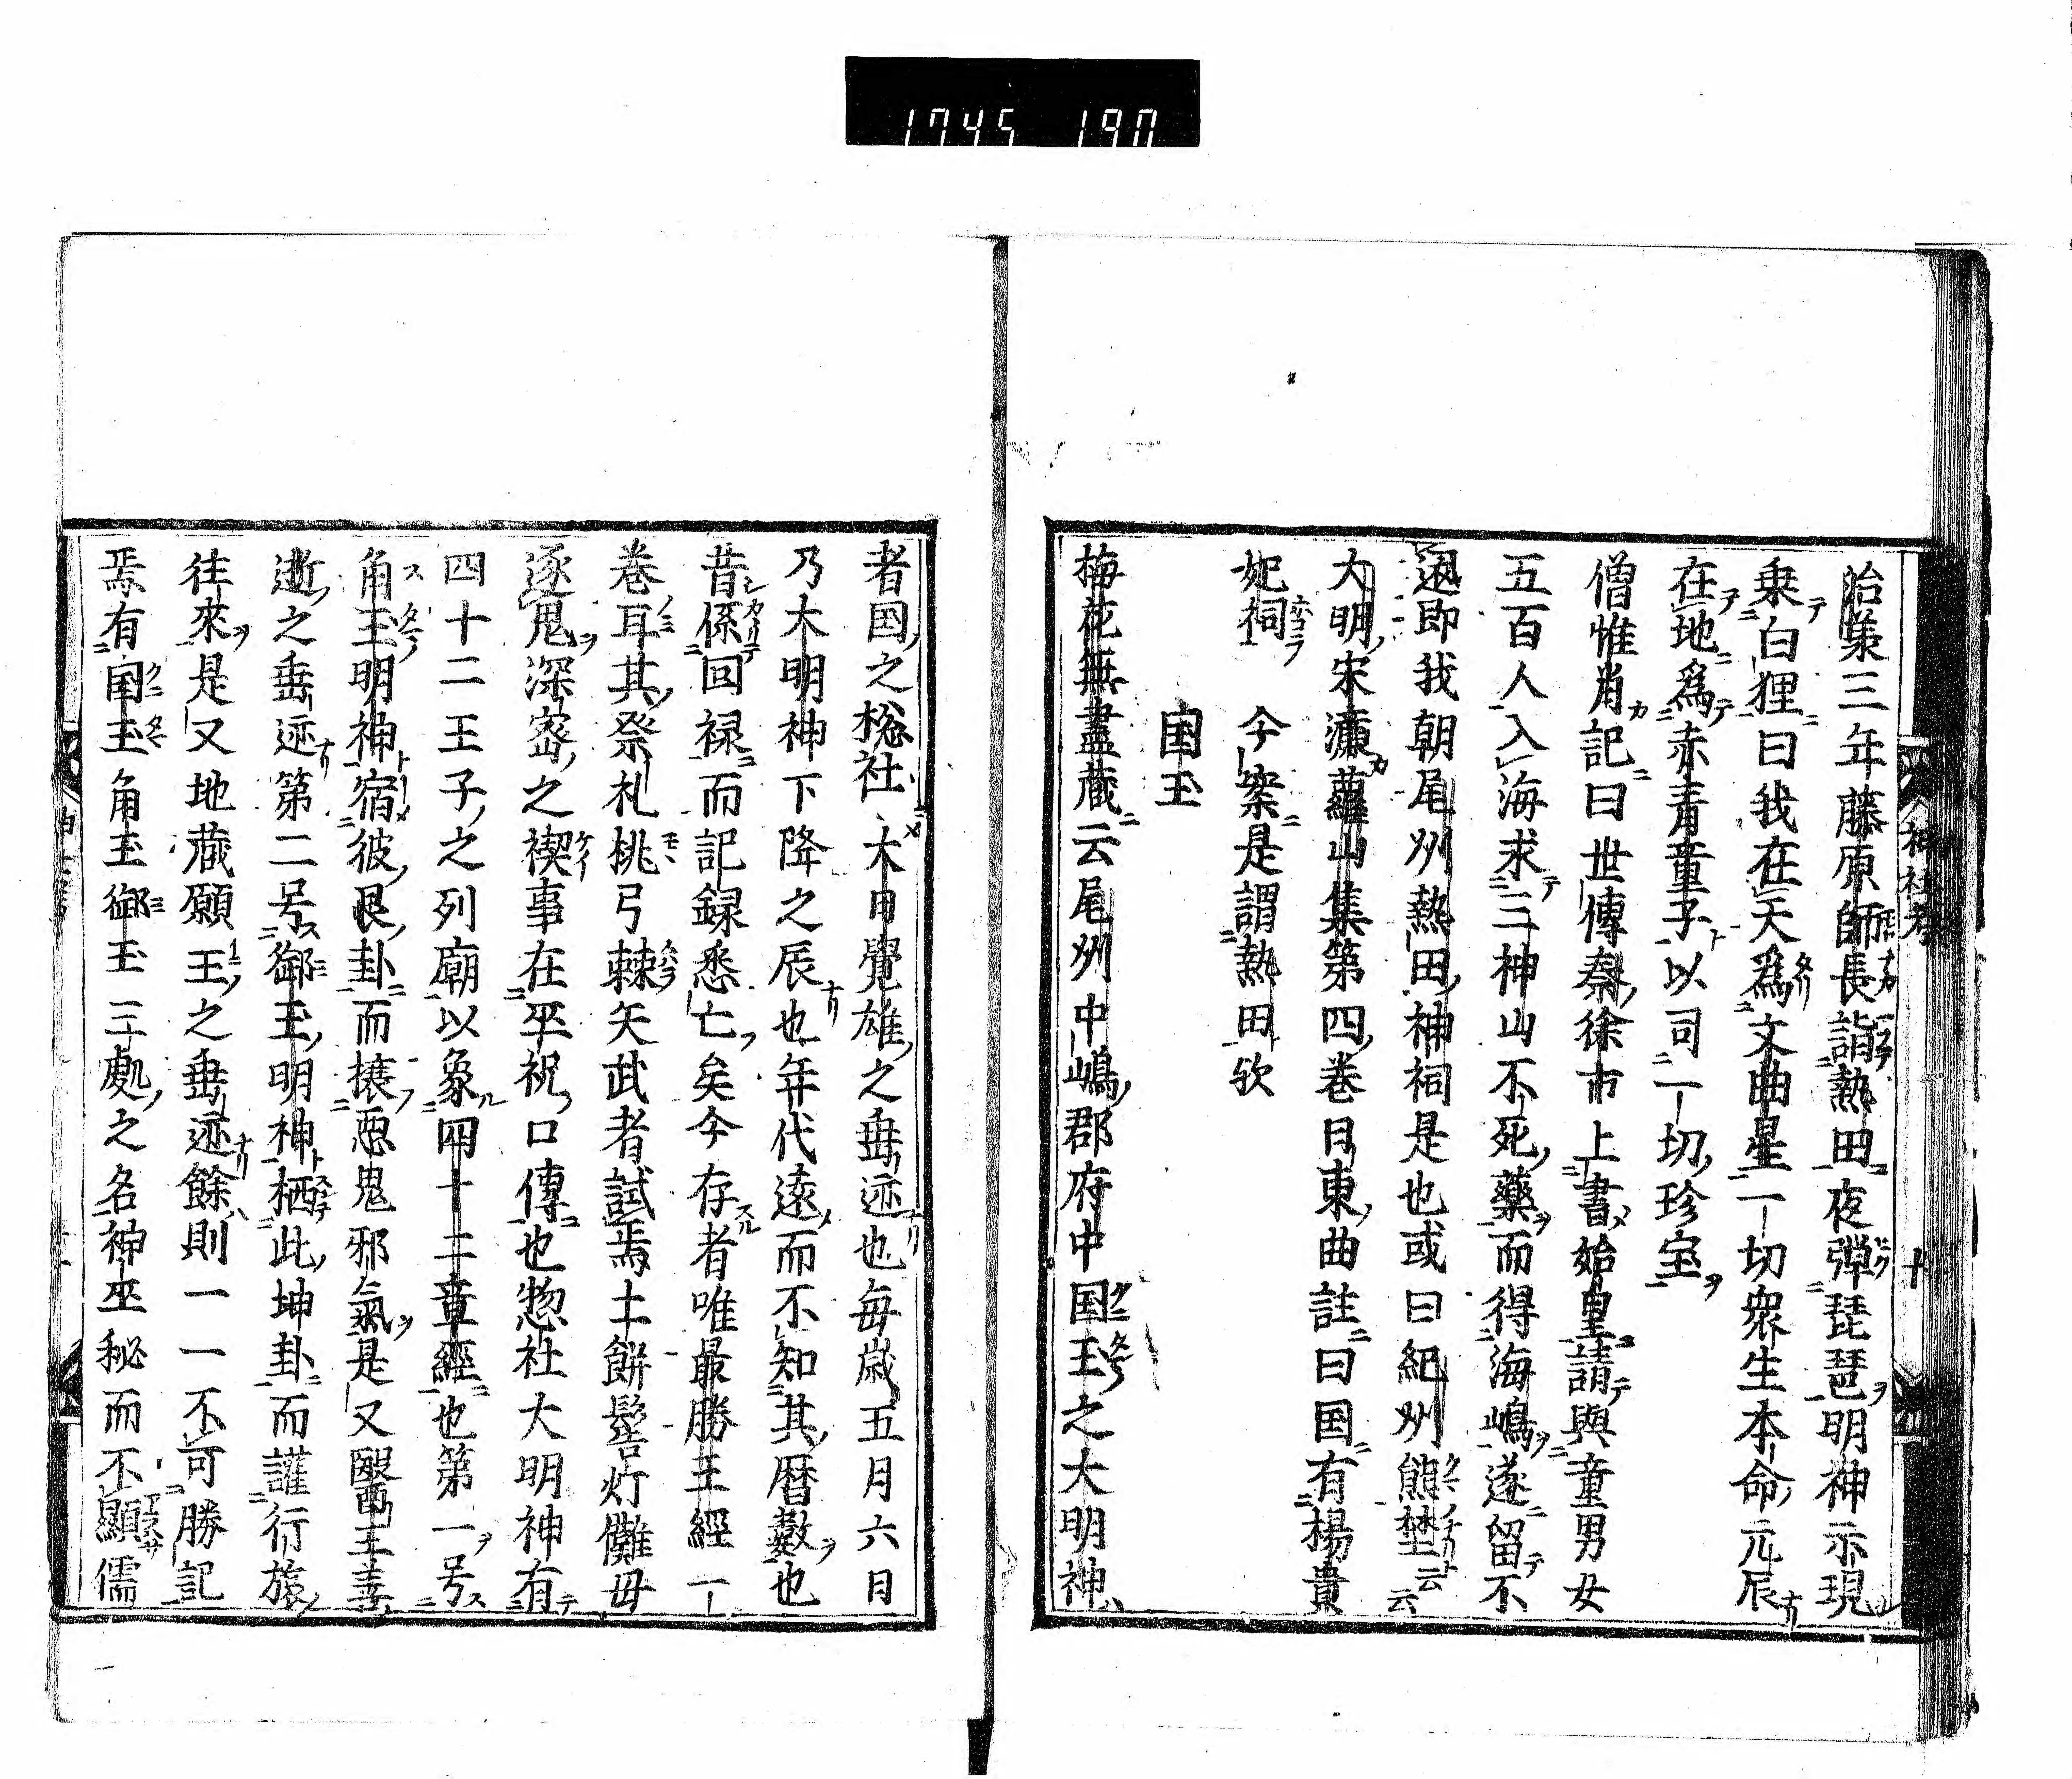 1745 197
神社考
十
治㒒三年藤原師長詣熱田夜弾琵琶明神示現
乗白狸曰我在天為文曲星一切衆生本命元辰
在地為赤青童子以司一切珍宝
僧惟肖記曰世傳秦徐市上書始皇請與童男女
五百人入海求三神山不死藥而得海嶋遂留不
還即我朝尾州熱田神祠是也或曰紀州熊埜云云
大明宋濂蘿山集第四巻日東曲註曰国有楊貴
妃祠　今案是謂熱田欤
国玉
梅花無盡蔵云尾州中嶋郡府中国玉之大明神
者国之総社大日覺雄之垂迹也毎歳五月六日
乃大明神下降之辰也年代遠而不知其暦數也
昔係回禄而記録悉亡矣今存者唯最勝王經一
巻耳其祭礼桃弓棘矢武者試焉土餅髻灯儺毋
逐鬼深密之禊事在巫祝口傳也惣社大明神有
四十二王子之列廟以象四十二章經也第一号
角玉明神宿彼艮卦而攘悪鬼邪氣是又醫王善
逝之垂迹第二号御玉明神栖此坤卦而護行旅
往來是又地蔵願王之垂迹餘則一一不可勝記
焉有国玉角玉御玉三處之名神巫秘而不顯儒